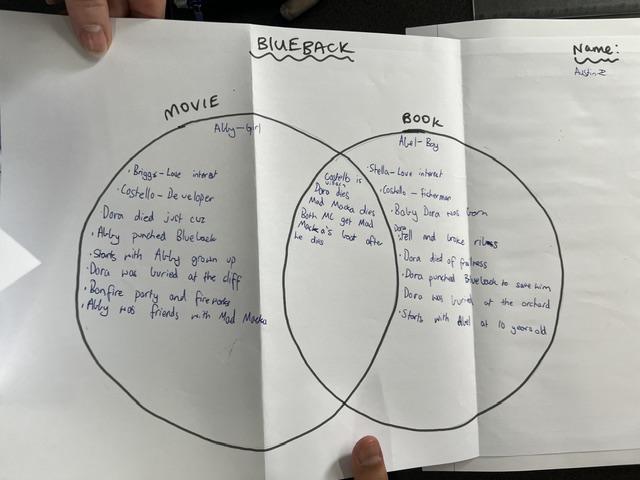 BLUEBACK
Name:
Austin.Z
MOVIE
Abby-Girl
• Briggs-Love interest
• Costello-Developer
Dora died just cuz
• Abby punched Blueback
• Starts with Abby grown up
• Dora was buried at the cliff
• Bonfire party and fireworks
• Abby was friends with Mad Macka
Costello is
villain
Dora dies
Mad Macka dies
Both MC get Mad
Macka's boat after
he dies
BOOK
Abel-Boy
• Stella-Love interest
• Costello-Fisherman
• Baby Dora was born
Dora
• fell and broke ribs
• Dora died of frailness
• Dora punched Blueback to save him
Dora was buried at the orchard
• Starts with Abel at 10 years old